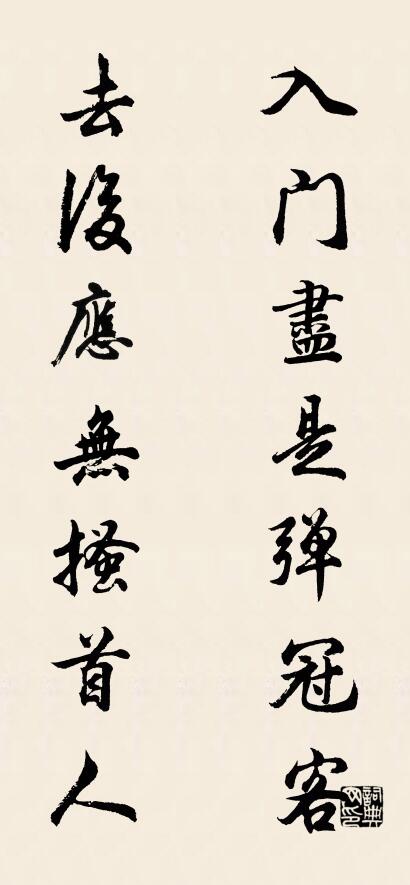 入门盡是弹冠客
去後應無搔首人
詞典网印